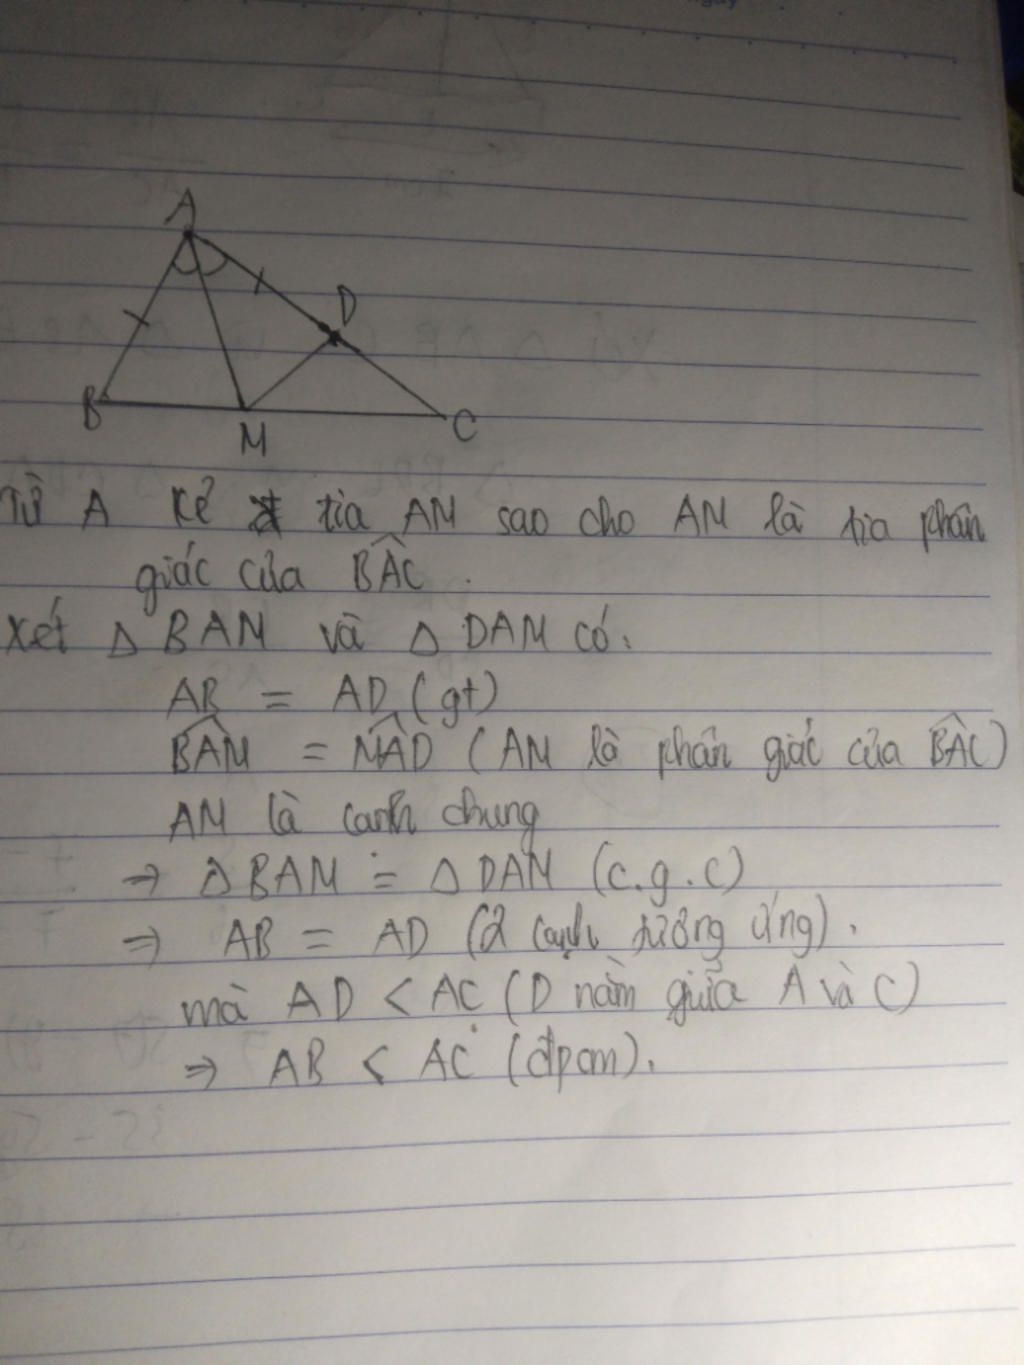 A
D
B
M
C
Từ A kẻ tia AM sao cho AM là tia phân
giác của BÂC.
Xét △ BAM và △ DAM có:
AB = AD (gt)
BÂM = MÂD (AM là phân giác của BÂC)
AM là cạnh chung
⇒ △BAM = △DAM (c.g.c)
⇒ AB = AD (2 cạnh tương ứng).
mà AD < AC (D nằm giữa A và C)
⇒ AB < AC (đpcm).